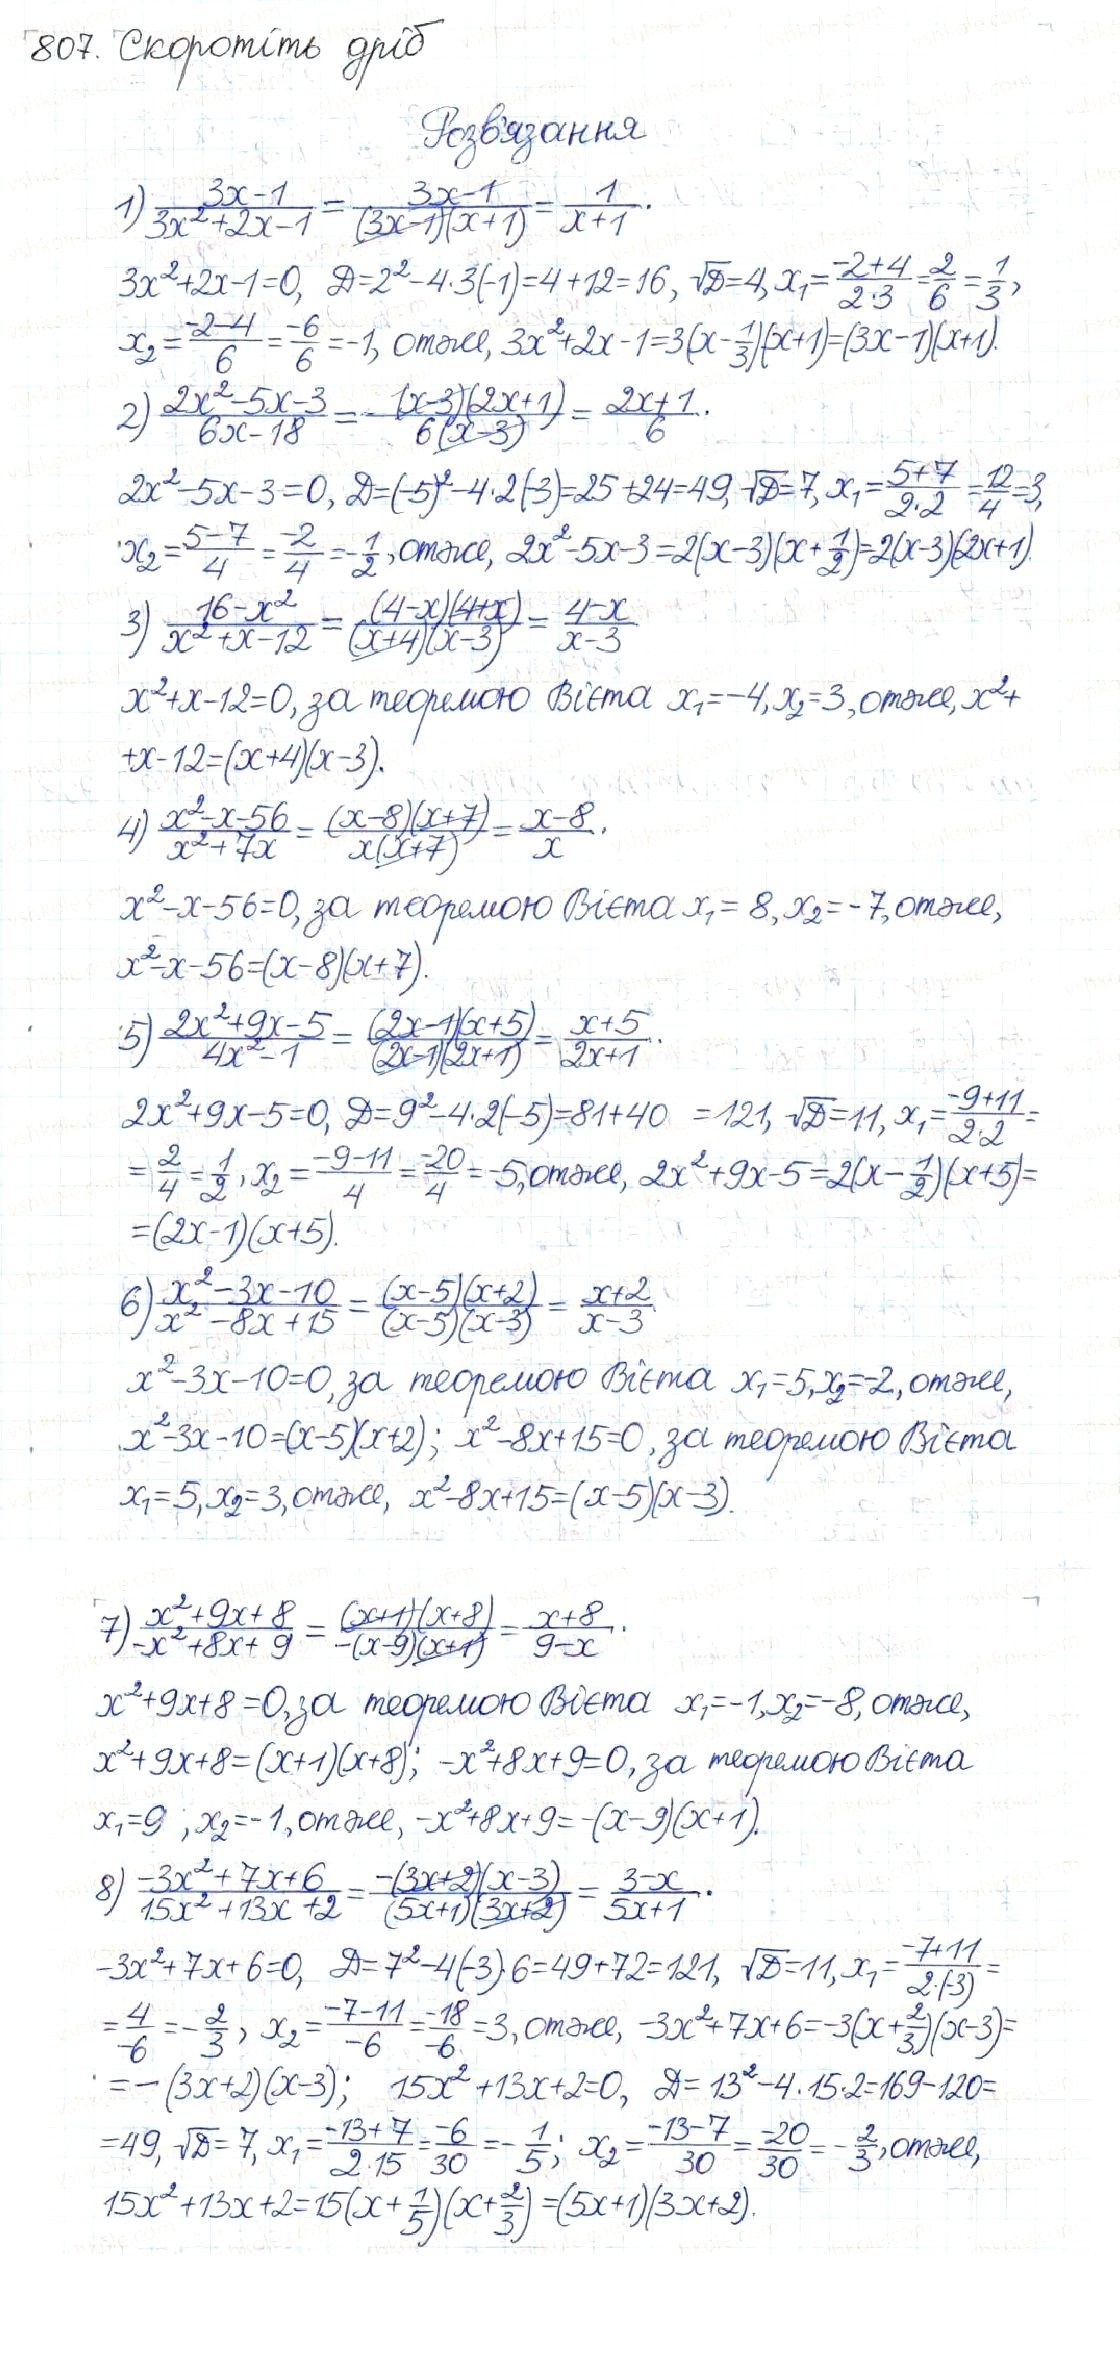 807. Скоротіть дріб
Розв'язання
1) (3x-1)/(3x²+2x-1) = (3x-1)/((3x-1)(x+1)) = 1/(x+1).
3x²+2x-1=0, D=2²-4·3(-1)=4+12=16, √D=4, x₁=(-2+4)/(2·3)=2/6=1/3,
x₂=(-2-4)/6=-6/6=-1, отже, 3x²+2x-1=3(x-1/3)(x+1)=(3x-1)(x+1).
2) (2x²-5x-3)/(6x-18) = ((x-3)(2x+1))/(6(x-3)) = (2x+1)/6.
2x²-5x-3=0, D=(-5)²-4·2(-3)=25+24=49, √D=7, x₁=(5+7)/(2·2)=12/4=3,
x₂=(5-7)/4=-2/4=-1/2, отже, 2x²-5x-3=2(x-3)(x+1/2)=2(x-3)(2x+1).
3) (16-x²)/(x²+x-12) = ((4-x)(4+x))/((x+4)(x-3)) = (4-x)/(x-3)
x²+x-12=0, за теоремою Вієта x₁=-4, x₂=3, отже, x²+
+x-12=(x+4)(x-3).
4) (x²-x-56)/(x²+7x) = ((x-8)(x+7))/(x(x+7)) = (x-8)/x.
x²-x-56=0, за теоремою Вієта x₁=8, x₂=-7, отже,
x²-x-56=(x-8)(x+7).
5) (2x²+9x-5)/(4x²-1) = ((2x-1)(x+5))/((2x-1)(2x+1)) = (x+5)/(2x+1).
2x²+9x-5=0, D=9²-4·2(-5)=81+40 =121, √D=11, x₁=(-9+11)/(2·2)=
=2/4=1/2, x₂=(-9-11)/4=-20/4=-5, отже, 2x²+9x-5=2(x-1/2)(x+5)=
=(2x-1)(x+5).
6) (x²-3x-10)/(x²-8x+15) = ((x-5)(x+2))/((x-5)(x-3)) = (x+2)/(x-3)
x²-3x-10=0, за теоремою Вієта x₁=5, x₂=-2, отже,
x²-3x-10=(x-5)(x+2); x²-8x+15=0, за теоремою Вієта
x₁=5, x₂=3, отже, x²-8x+15=(x-5)(x-3).
7) (x²+9x+8)/(-x²+8x+9) = ((x+1)(x+8))/(-(x-9)(x+1)) = (x+8)/(9-x).
x²+9x+8=0, за теоремою Вієта x₁=-1, x₂=-8, отже,
x²+9x+8=(x+1)(x+8); -x²+8x+9=0, за теоремою Вієта
x₁=9; x₂=-1, отже, -x²+8x+9=-(x-9)(x+1).
8) (-3x²+7x+6)/(15x²+13x+2) = (-(3x+2)(x-3))/((5x+1)(3x+2)) = (3-x)/(5x+1).
-3x²+7x+6=0, D=7²-4(-3)·6=49+72=121, √D=11, x₁=(-7+11)/(2·(-3))=
=4/-6=-2/3, x₂=(-7-11)/-6=-18/-6=3, отже, -3x²+7x+6=-3(x+2/3)(x-3)=
=-(3x+2)(x-3); 15x²+13x+2=0, D=13²-4·15·2=169-120=
=49, √D=7, x₁=(-13+7)/(2·15)=-6/30=-1/5; x₂=(-13-7)/30=-20/30=-2/3, отже,
15x²+13x+2=15(x+1/5)(x+2/3)=(5x+1)(3x+2).